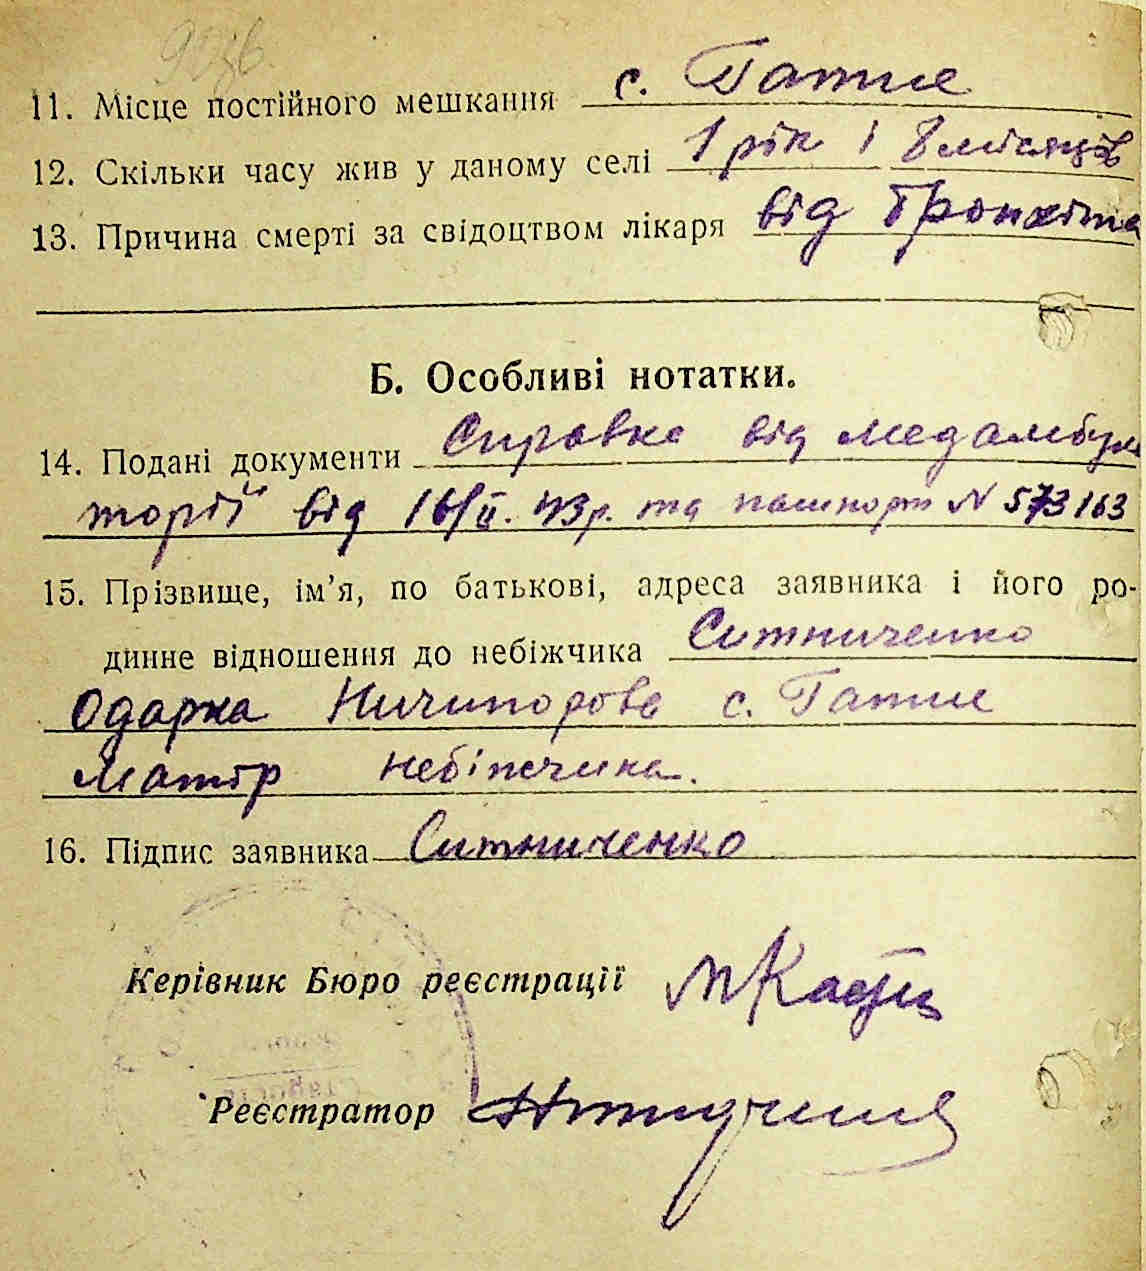 11. Місце постійного мешкання с. Гатне
12. Скільки часу жив у даному селі 1 рік і 8 місяців
13. Причина смерті за свідоцтвом лікаря від бронхіта
Б. Особливі нотатки.
14. Подані документи Справка від медамбуля
торії від 16/II. 43 р. та пашпорт N 573163
15. Прізвище, ім'я, по батькові, адреса заявника і його ро-
динне відношення до небіжчика Ситниченко
Одарка Ничипорова с. Гатне
Матір небіжчика.
16. Підпис заявника Ситниченко
Керівник Бюро реєстрації
Реєстратор